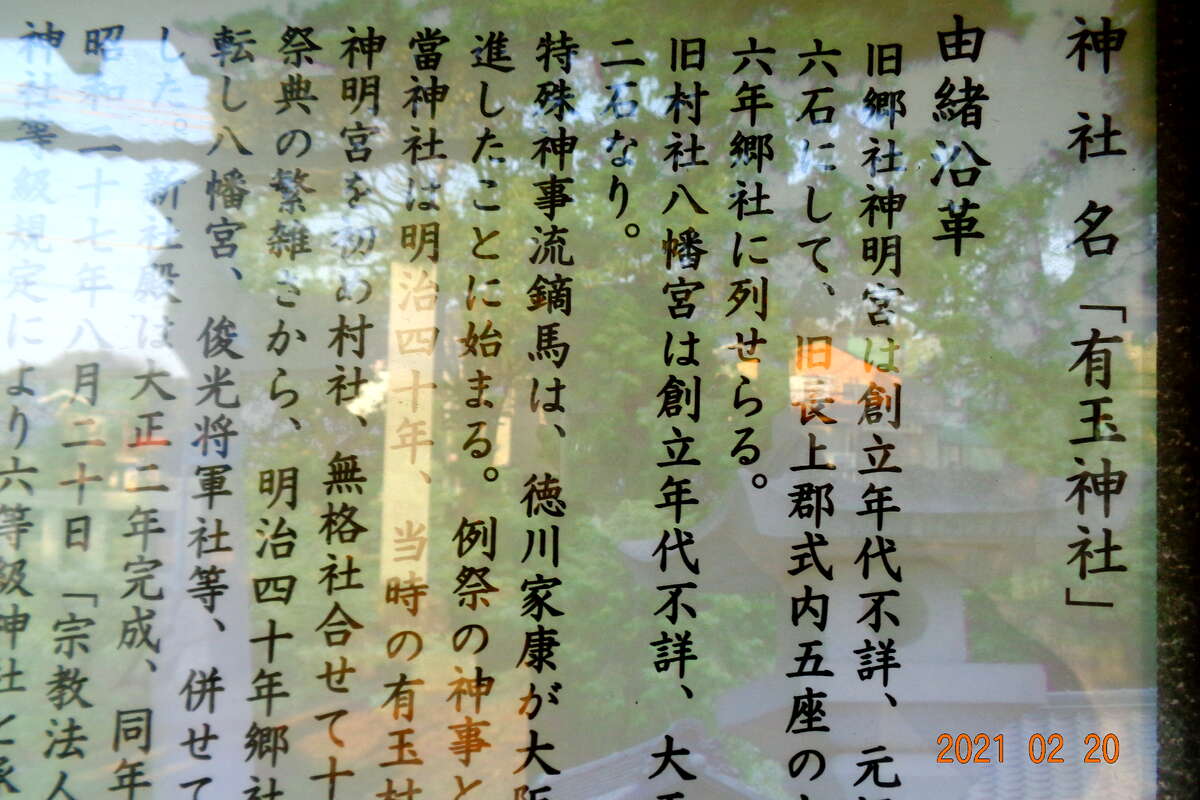 神社名「有玉神社」
由緒沿革
旧郷社神明宮は創立年代不詳、元
六石にして、旧長上郡式内五座の
六年郷社に列せらる。
旧村社八幡宮は創立年代不詳、大
二石なり。
特殊神事流鏑馬は、徳川家康が大阪
進したことに始まる。例祭の神事と
當神社は明治四十年、当時の有玉村
神明宮を初め村社、無格社合せて十
祭典の繁雑さから、明治四十年郷社
転し八幡宮、俊光将軍社等、併せて
した。新社殿は大正二年完成、同年
昭和二十七年八月二十日「宗教法人
神社等級規定により六等級神社と承
2021 02 20